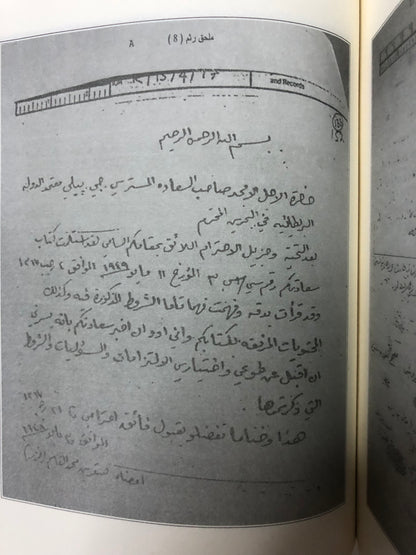 ملحق رقم (8)
A
R/15/4/17
and Records
بسم الله الرحمن الرحيم
حضرة الاجل الامجد صاحب السعاده المستر سي. جي. بيلي معتمد الدوله
البريطانيه في البحرين المحترم
بعد التحية وجزيل الاحترام اللائق بمقامكم السامي لقد استلمت كتاب
سعادتكم رقم سي المؤرخ ١١ مايو ١٩٤٩ الموافق
وقد قرأت بدقه وفهمت فهما تاما الشروط المذكورة فيه وكذلك
المحتويات المرفقه لكتابكم واني اود ان اخبر سعادتكم بانه يسرني
ان اقبل عن طوعي واختياري الالتزامات والمسؤليات والشروط
التي ذكرتموها.
هذا وختاما تفضلو بقبول فائق احترامي
الموافق
امضاء